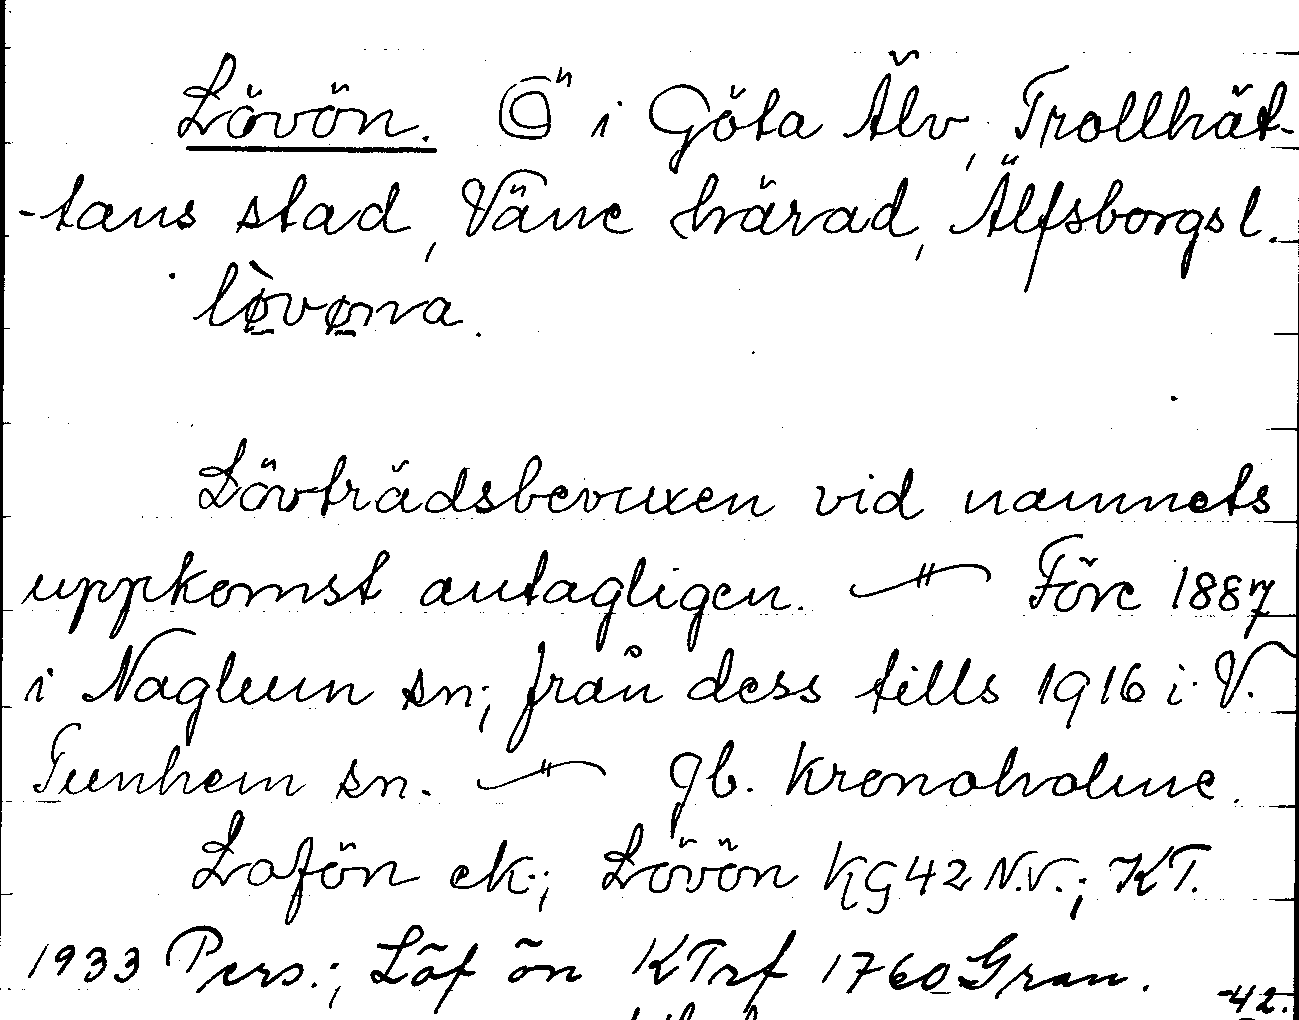 Lövön. Ö i Göta Älv, Trollhät-
-tans stad, Väne härad, Älfsborgs l.
lø̀vøna.
Lövträdsbevuxen vid namnets
uppkomst antagligen. — " — Före 1887
i Naglum sn; från dess tills 1916 i V.
Tunhem sn. — " — Jb. Kronoholme.
Lafön ek.; Lövön KG42 N.V.; KT.
1933 Pers.; Löf ön KTrf 1760 Gran.
-42.